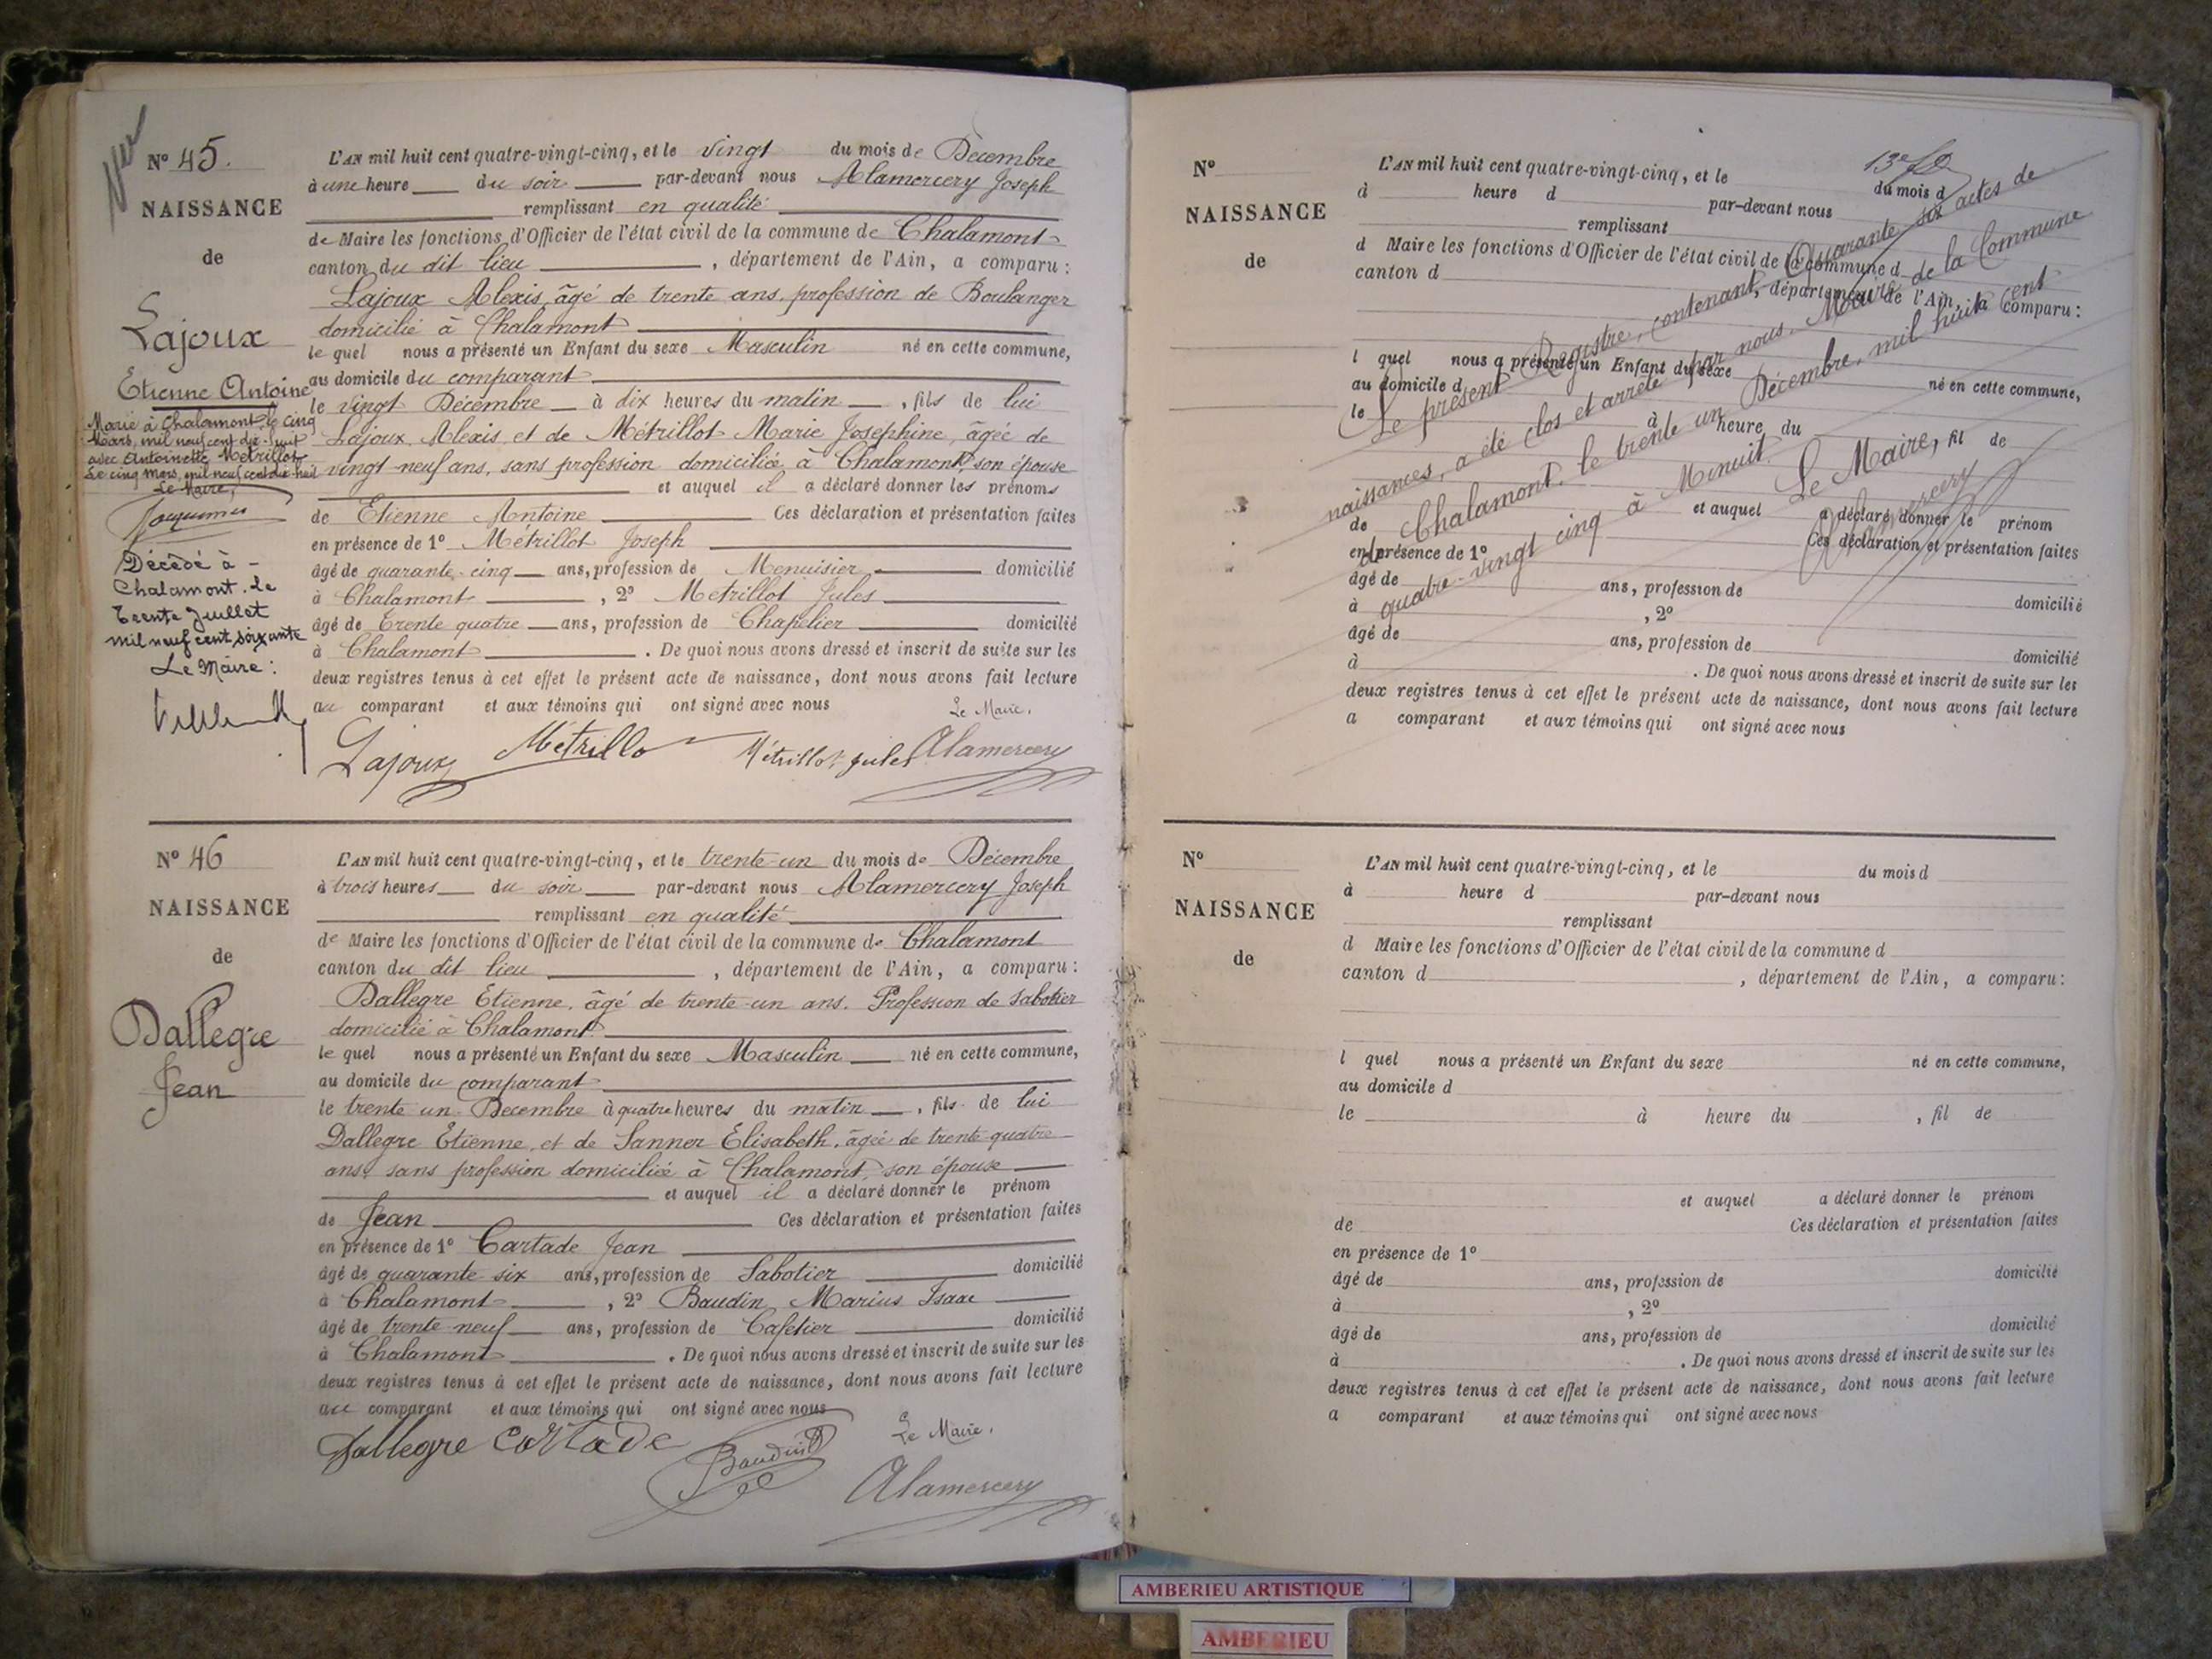 Vu
N° 45.
NAISSANCE
de
Lajoux
Etienne Antoine
Marié à Chalamont, le cinq
Mars, mil neuf cent dix-huit
avec Antoinette Métrillot
Le cinq Mars, mil neuf cent dix-huit
Le Maire,
Décédé à -
Chalamont. Le
Trente Juillet
mil neuf cent soixante
Le Maire :
L'AN mil huit cent quatre-vingt-cinq, et le vingt du mois de Décembre
à une heure du soir par-devant nous Alamercery Joseph
remplissant en qualité
de Maire les fonctions d'Officier de l'état civil de la commune de Chalamont
canton du dit lieu, département de l'Ain, a comparu :
Lajoux Alexis, âgé de trente ans, profession de Boulanger
domicilié à Chalamont
le quel nous a présenté un Enfant du sexe Masculin né en cette commune,
au domicile du comparant
le vingt Décembre à dix heures du matin, fils de lui
Lajoux Alexis et de Métrillot Marie Josephine, âgée de
vingt-neuf ans, sans profession domiciliée à Chalamont, son épouse
et auquel il a déclaré donner les prénoms
de Etienne Antoine Ces déclaration et présentation faites
en présence de 1° Métrillot Joseph
âgé de quarante-cinq ans, profession de Menuisier domicilié
à Chalamont, 2° Métrillot Jules
âgé de trente quatre ans, profession de Chapelier domicilié
à Chalamont. De quoi nous avons dressé et inscrit de suite sur les
deux registres tenus à cet effet le présent acte de naissance, dont nous avons fait lecture
au comparant et aux témoins qui ont signé avec nous
Le Maire.
Lajoux Métrillo Métrillot Jules Alamercery
N° 46
NAISSANCE
de
Dallegre
Jean
L'AN mil huit cent quatre-vingt-cinq, et le trente-un du mois de Décembre
à trois heures du soir par-devant nous Alamercery Joseph
remplissant en qualité
de Maire les fonctions d'Officier de l'état civil de la commune de Chalamont
canton du dit lieu, département de l'Ain, a comparu :
Dallegre Etienne, âgé de trente-un ans. Profession de Sabotier
domicilié à Chalamont
le quel nous a présenté un Enfant du sexe Masculin né en cette commune,
au domicile du comparant
le trente un Decembre à quatre heures du matin, fils de lui
Dallegre Etienne, et de Sanner Elisabeth, âgée de trente-quatre
ans, sans profession domiciliée à Chalamont, son épouse
et auquel il a déclaré donner le prénom
de Jean Ces déclaration et présentation faites
en présence de 1° Cartade Jean
âgé de quarante six ans, profession de Sabotier domicilié
à Chalamont, 2° Baudin Marius Isaac
âgé de trente-neuf ans, profession de Cafetier domicilié
à Chalamont. De quoi nous avons dressé et inscrit de suite sur les
deux registres tenus à cet effet le présent acte de naissance, dont nous avons fait lecture
au comparant et aux témoins qui ont signé avec nous
Le Maire.
Dallegre Cartade Baudin Alamercery
13e
N°
NAISSANCE
de
L'AN mil huit cent quatre-vingt-cinq, et le du mois d
à heure d par-devant nous
remplissant
d Maire les fonctions d'Officier de l'état civil de la commune d
canton d, département de l'Ain, a comparu :
l quel nous a présenté un Enfant du sexe né en cette commune,
au domicile d
le à heure du, fil de
et auquel a déclaré donner le prénom
de Ces déclaration et présentation faites
en présence de 1°
âgé de ans, profession de domicilié
à, 2°
âgé de ans, profession de domicilié
à. De quoi nous avons dressé et inscrit de suite sur les
deux registres tenus à cet effet le présent acte de naissance, dont nous avons fait lecture
a comparant et aux témoins qui ont signé avec nous
Le présent Registre, contenant Quarante six actes de
naissances, a été clos et arrêté par nous, Maire de la Commune
de Chalamont, le trente un Décembre, mil huit cent
quatre-vingt cinq à Minuit.
Le Maire,
Alamercery
N°
NAISSANCE
de
L'AN mil huit cent quatre-vingt-cinq, et le du mois d
à heure d par-devant nous
remplissant
d Maire les fonctions d'Officier de l'état civil de la commune d
canton d, département de l'Ain, a comparu :
l quel nous a présenté un Enfant du sexe né en cette commune,
au domicile d
le à heure du, fil de
et auquel a déclaré donner le prénom
de Ces déclaration et présentation faites
en présence de 1°
âgé de ans, profession de domicilié
à, 2°
âgé de ans, profession de domicilié
à. De quoi nous avons dressé et inscrit de suite sur les
deux registres tenus à cet effet le présent acte de naissance, dont nous avons fait lecture
a comparant et aux témoins qui ont signé avec nous
AMBERIEU ARTISTIQUE
AMBERIEU